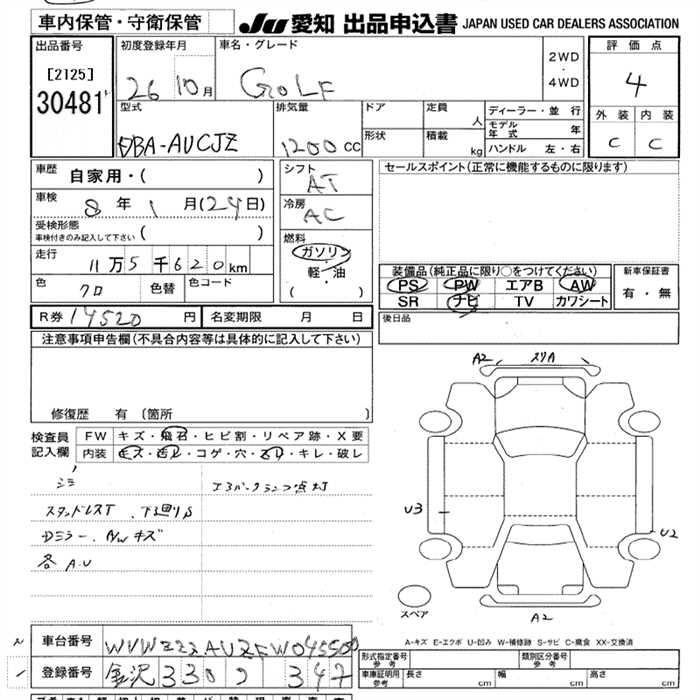 車内保管・守衛保管
JU 愛知 出品申込書 JAPAN USED CAR DEALERS ASSOCIATION
出品番号
[2125]
30481
初度登録年月
26 10月
車名・グレード
GOLF
2WD
・
4WD
評価点
4
外装 内装
C C
型式
DBA-AUCJZ
排気量
1200 CC
ドア
定員
人
形状
積載
kg
ディーラー・並行
モデル年式 年
ハンドル 左・右
車歴
自家用・( )
車検
8年 1月(24日)
受検形態
車検付きのみ記入して下さい ( )
走行
11万5千620km
色
クロ
色替
色コード
シフト
AT
冷房
AC
燃料
ガソリン
・
軽・油
( )
セールスポイント(正常に機能するものに限ります)
装備品(純正品に限り○をつけてください)
PS PW エアB AW
SR ナビ TV カワシート
新車保証書
有・無
R券 14520円
名変期限 月 日
後日品
注意事項申告欄(不具合内容等は具体的に記入して下さい)
修復歴 有 〔箇所 〕
検査員記入欄
FW キズ・飛石・ヒビ割・リペア跡・X要
内装 キズ・汚レ・コゲ・穴・スレ・キレ・破レ
シミ
エアバックランプ点灯
スタッドレスT 下廻りS
Dミラー、AWキズ
各A.U
A2 スリA
U3
U2
A2
スペア
A-キズ E-エクボ U-凹み W-補修跡 S-サビ C-腐食 XX-交換済
車台番号
WVWZZZAUZFW045500
登録番号
金沢 330 347
形式指定番号
参考
類別区分番号
参考
車庫証明用
参考
長さ cm
幅 cm
高さ cm